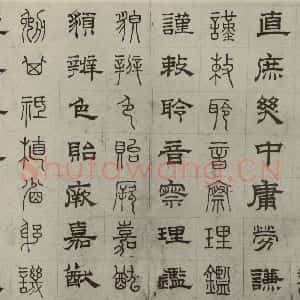 直庶幾中庸勞謙
謹敕聆音察理鑑
謹敕聆音察理鑑
貌辨色貽厥嘉猷
貌辨色貽厥嘉猷
勉其祗植省躬譏
Shufawang.CN